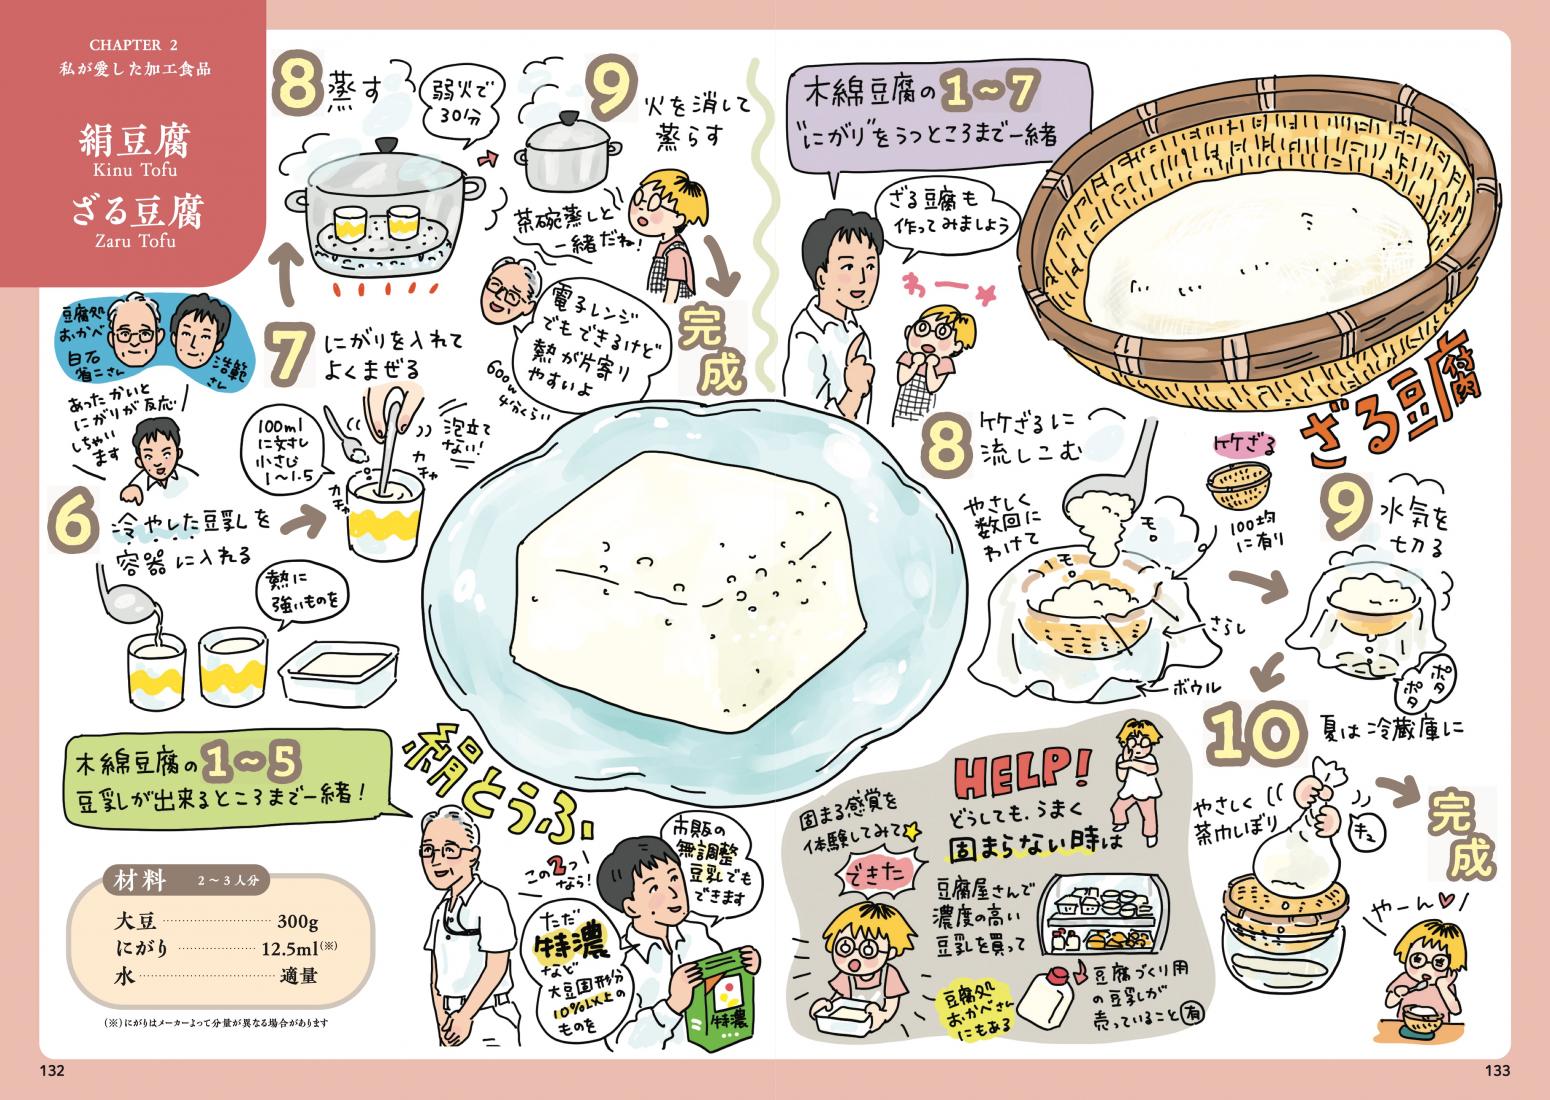 CHAPTER 2
私が愛した加工食品
絹豆腐
Kinu Tofu
ざる豆腐
Zaru Tofu
豆腐処
おかべ
白石
省二さん
浩範
さん
木綿豆腐の1~5
豆乳が出来るところまで一緒!
材料 2~3人分
大豆 300g
にがり 12.5ml(※)
水 適量
(※)にがりはメーカーよって分量が異なる場合があります
6
冷やした豆乳を
容器に入れる
あったかいと
にがりが反応
しちゃい
ます
熱に
強いものを
7
にがりを入れて
よくまぜる
100ml
に対し
小さじ
1~1.5
泡立て
ない!
カチャ
カチャ
8
蒸す
弱火で
30分
9
火を消して
蒸らす
茶碗蒸しと
一緒だね!
電子レンジ
でもできるけど
熱が片寄り
やすいよ
600w
4分くらい
完成
絹とうふ
この2つ
なら!
市販の
無調整
豆乳でも
できます
ただ
特濃
など
大豆固形分
10%以上の
ものを
特濃
木綿豆腐の1~7
"にがり"をうつところまで一緒
ざる豆腐も
作ってみましよう
わーー
ざる豆腐
8
竹ざるに
流しこむ
やさしく
数回に
わけて
モ。
モ。
さらし
ボウル
竹ざる
100均
に有り
9
水気を
切る
ポタ
ポタ
10
夏は冷蔵庫に
やさしく
茶巾しぼり
キュ
完成
やーん♡
固まる感覚を
体験してみて☆
できた
HELP!
どうしても、うまく
固まらない時は
豆腐屋さんで
濃度の高い
豆乳を買って
豆腐処
おかべさん
にもある
豆腐づくり用
の豆乳が
売っていること有
132
133